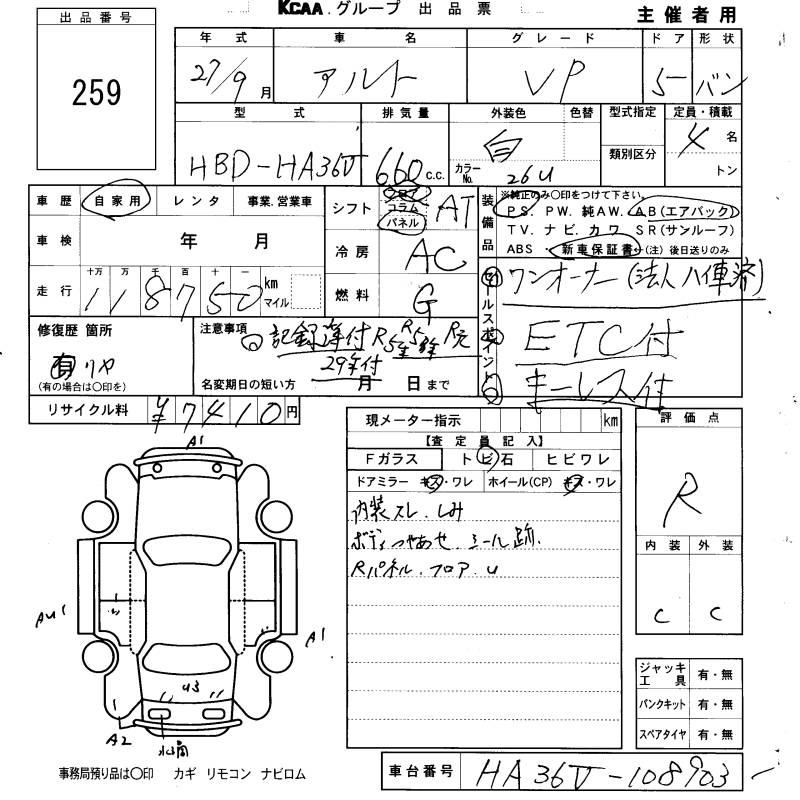 KCAA グループ 出品票
主催者用
出品番号
259
年式 車名 グレード ドア 形状
27/9月 アルト VP 5 バン
型式 排気量 外装色 色替 型式指定 定員・積載
HBD-HA36V 660 c.c. 白 類別区分 4名
カラーNo. 26U トン
車歴 自家用 レンタ 事業.営業車
車検 年 月
走行 十万 万 千 百 十 一
118750 km マイル
シフト フロア コラム パネル AT
冷房 AC
燃料 G
装備品
※純正のみ〇印をつけて下さい。
PS. PW. 純AW. AB(エアバック)
TV. ナビ. カワ. SR(サンルーフ)
ABS ・ 新車保証書←(注) 後日送りのみ
セールスポイント
ワンオーナー(法人ハイ車済)
ETC付
キーレス付
修復歴 箇所
有 リヤ
(有の場合は〇印を)
注意事項
記録簿付 R5 R元
29年付
名変期日の短い方 月 日まで
リサイクル料 ¥7410円
現メーター指示 km
【査定員記入】
Fガラス トビ石 ヒビワレ
ドアミラー キズ・ワレ ホイール(CP) キズ・ワレ
内装スレ.しみ
ボディつやあせ.シール跡.
Rパネル.フロア.U
評価点
R
内装 外装
C C
ジャッキ工具 有・無
パンクキット 有・無
スペアタイヤ 有・無
A1
AU1
A1
U3
A2
事務局預り品は〇印 カギ リモコン ナビロム
車台番号 HA36V-108903